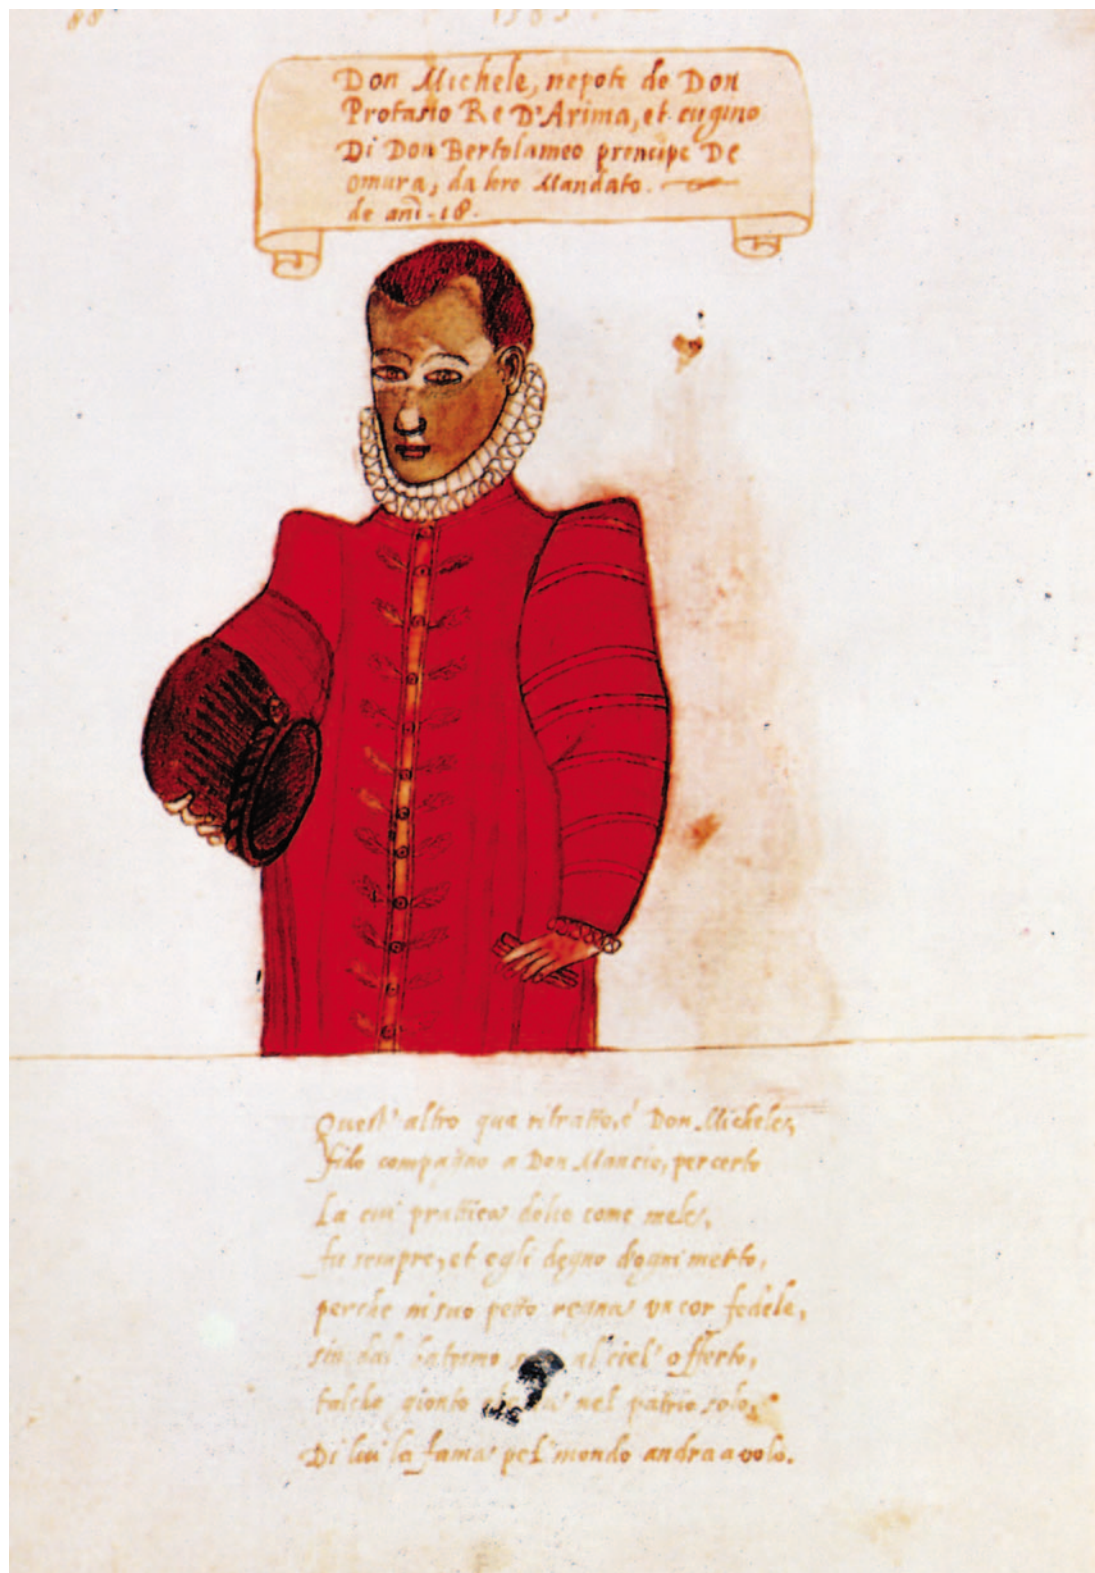 88 1585
Don Michele, nepote de Don
Protasio Re D'Arima, et cugino
Di Don Bertolameo prencipe De
omura, da loro Mandato.
de anni. 18.
Quest' altro qua ritratto, è Don Michele,
fido compagno a Don Mancio, per certo
La cui prattica dolce come mele,
fu sempre, et egli degno d'ogni merto,
perche in suo petto regna un cor fedele,
sin dal al ciel' offerto,
talche gionto nel patrio solo,
Di lui la fama pel mondo andra a volo.